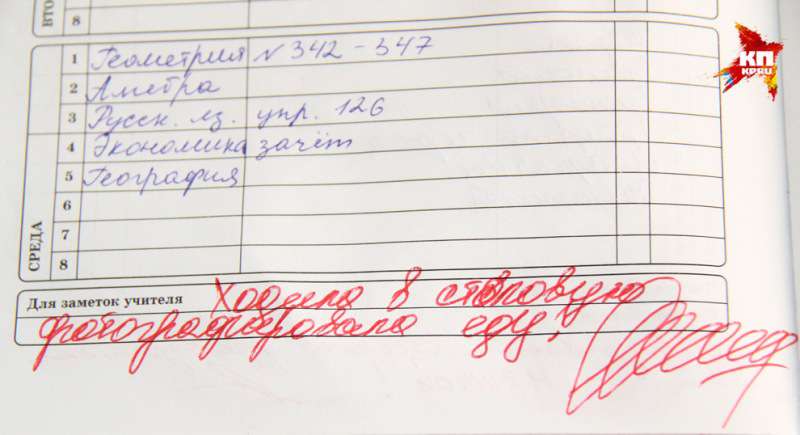 ВТО
8
КП
KP.RU
СРЕДА
1 Геометрия N 342 - 347
2 Алгебра
3 Русск. яз. упр. 126
4 Экономика зачёт
5 География
6
7
8
Для заметок учителя Ходила в столовую
фотографировала еду!